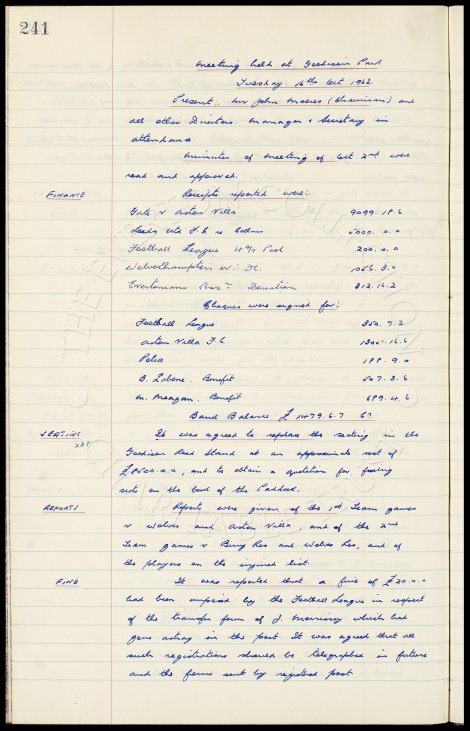 241
Meeting held at Goodison Park
Tuesday 16th Oct 1962
Present: Mr John Moores (Chairman) and
all other Directors. Manager & Secretary in
attendance.
Minutes of Meeting of Oct 2nd were
read and approved.
FINANCE Receipts reported were:
Gate v Aston Villa 9099.18.6
Leeds Utd F.C. re Collins 5000.0.0
Football League 4% Pool 200.0.0
Wolverhampton W. FC. 1056.3.0
Evertonians Assn. Donation 312.16.2
Cheques were signed for:
Football League 350.7.2
Aston Villa F.C 1305.16.6
Police 188.9.0
B. Labone. Benefit 507.3.6
M. Meagan. Benefit 689.4.6
Bank Balance £ 1479.6.7
SEATING It was agreed to replace the seating in the
238
Goodison Road Stand at an approximate cost of
£8500.0.0, and to obtain a quotation for fixing
seats on the back of the Paddock.
REPORTS Reports were given of the 1st Team games
v Wolves and Aston Villa, and of the 2nd
Team games v Bury Res and Wolves Res, and of
the players on the injured list.
FINE It was reported that a fine of £20.0.0
had been imposed by the Football League in respect
of the transfer form of J. Morrissey which had
gone astray in the post. It was agreed that all
such registrations should be telegraphed in future
and the forms sent by registered post
THE EVERTON COLLECTION